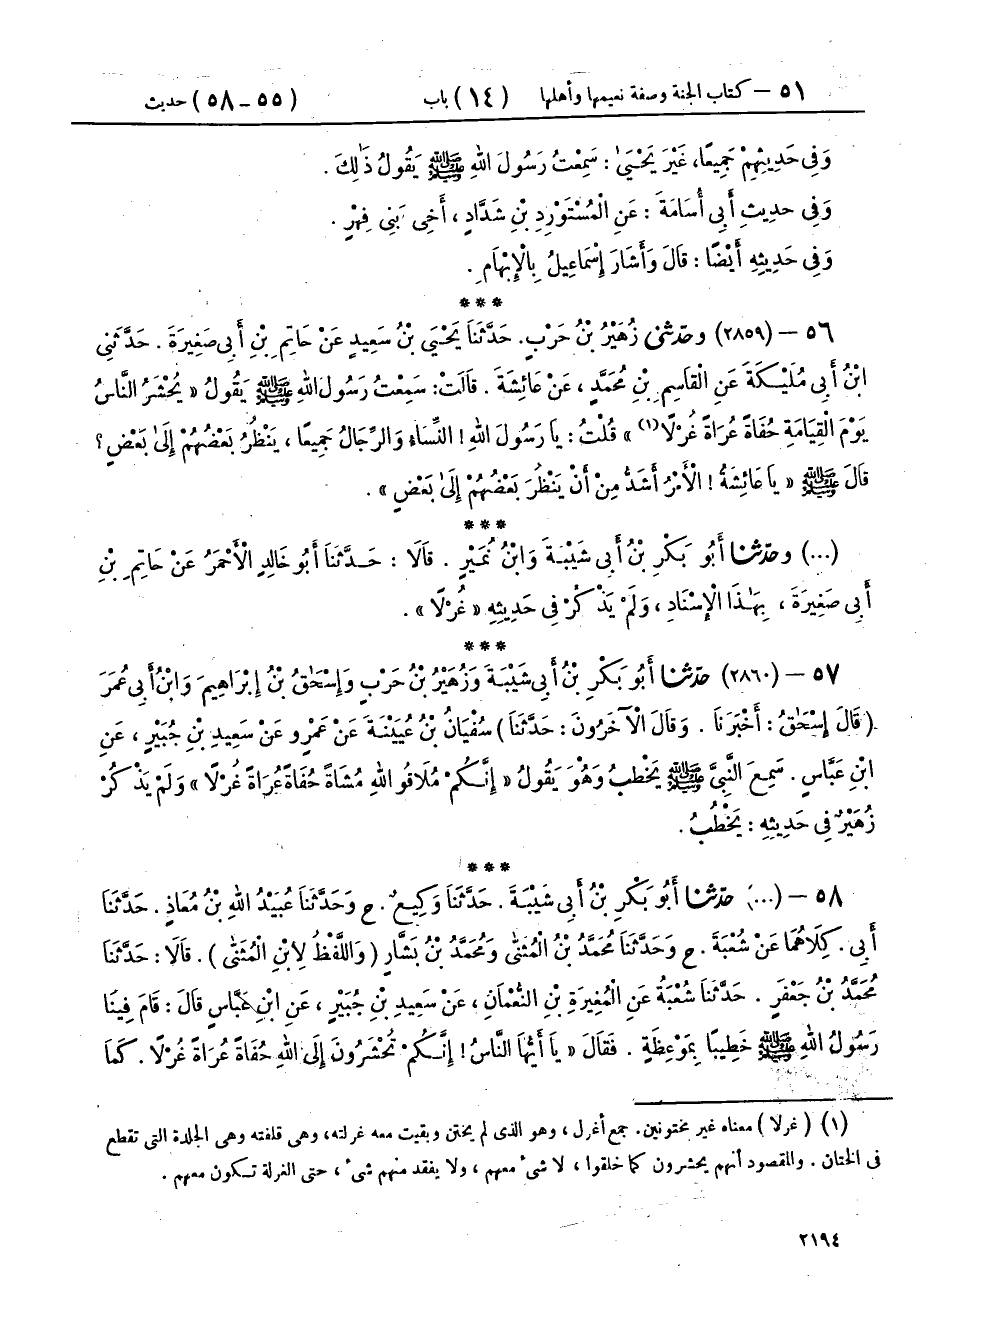 ٥١ – كتاب الجنة وصفة نعيمها وأهلها (١٤) باب (٥٥ – ٥٨) حديث
وَفِى حَدِيثِهِمْ جَمِيعًا، غَيْرَ يَحْيَىٰ : سَمِعْتُ رَسُولَ اللهِ ﷺ يَقُولُ ذَٰلِكَ .
وَفِى حديثِ أَبِى أُسَامَةَ : عَنِ الْمُسْتَوْرِدِ بْنِ شَدَّادٍ ، أَخِى بَنِى فِهْرٍ .
وَفِى حَدِيثِهِ أَيْضًا : قَالَ وَأَشَارَ إِسْمَاعِيلُ بِالْإِبْهَامِ .
***
٥٦ – (٢٨٥٩) وحدّثنى زُهَيْرُ بْنُ حَرْبٍ. حَدَّثَنَا يَحْيَىَ بْنُ سَعِيدٍ عَنْ حَاتِمِ بْنِ أَبِى صَغِيرَةَ . حَدَّثَنِى
ابْنُ أَبِى مُلَيْكَةَ عَنِ الْقَاسِمِ بْنِ مُحَمَّدٍ ، عَنْ عَائِشَةَ . قَالَتْ: سَمِعْتُ رَسُولَ اللهِ ﷺ يَقُولُ « يُحْشَرُ النَّاسُ
يَوْمَ الْقِيَامَةِ حُفَاةً عُرَاةً غُرْلًا(١) » قُلْتُ : يَا رَسُولَ اللهِ ! النِّسَاءِ وَالرِّجَالُ جَمِيعًا ، يَنْظُرُ بَعْضُهُمْ إِلَىٰ بَعْضٍ ؟
قَالَ ﷺ « يَا عَائِشَةُ ! الْأَمْرُ أَشَدُّ مِنْ أَنْ يَنْظُرَ بَعْضُهُمْ إِلَىٰ بَعْضٍ » .
***
(...) وحدّثنا أَبُو بَكْرِ بْنُ أَبِى شَيْبَةَ وَابْنُ نُمَيْرٍ . قَالَا : حَدَّثَنَا أَبُو خَالِدٍ الْأَحْمَرُ عَنْ حَاتِمِ بْنِ
أَبِى صَغِيرَةَ ، بِهَٰذَا الْإِسْنَادِ ، وَلَمْ يَذْكُرْ فِى حَدِيثِهِ « غُرْلًا » .
***
٥٧ – (٢٨٦٠) حدّثنا أَبُو بَكْرِ بْنُ أَبِى شَيْبَةَ وَزُهَيْرُ بْنُ حَرْبٍ وَإِسْحَٰقُ بْنُ إِبْرَاهِيمَ وَابْنُ أَبِى عُمَرَ
( قَالَ إِسْحَٰقُ : أَخْبَرَنَا . وَقَالَ الْآخَرُونَ : حَدَّثَنَا ) سُفْيَانُ بْنُ عُيَيْنَةَ عَنْ عَمْرٍو عَنْ سَعِيدِ بْنِ جُبَيْرٍ ، عَنِ
ابْنِ عَبَّاسٍ . سَمِعَ النَّبِىَّ ﷺ يَخْطُبُ وَهُوَ يَقُولُ « إِنَّكُمْ مُلَاقُو اللهِ مُشَاةً حُفَاةً عُرَاةً غُرْلًا » وَلَمْ يَذْكُرْ
زُهَيْرٌ فِى حَدِيثِهِ : يَخْطُبُ .
***
٥٨ – (...) حدّثنا أَبُو بَكْرِ بْنُ أَبِى شَيْبَةَ . حَدَّثَنَا وَكِيعٌ . ح وَحَدَّثَنَا عُبَيْدُ اللهِ بْنُ مُعَاذٍ . حَدَّثَنَا
أَبِى . كِلَاهُمَا عَنْ شُعْبَةَ . ح وَحَدَّثَنَا مُحَمَّدُ بْنُ الْمُثَنَّى وَمُحَمَّدُ بْنُ بَشَّارٍ ( وَاللَّفْظُ لِابْنِ الْمُثَنَّى ) . قَالَا : حَدَّثَنَا
مُحَمَّدُ بْنُ جَعْفَرٍ . حَدَّثَنَا شُعْبَةُ عَنِ الْمُغِيرَةِ بْنِ النُّعْمَانِ ، عَنْ سَعِيدِ بْنِ جُبَيْرٍ ، عَنِ ابْنِ عَبَّاسٍ قَالَ : قَامَ فِينَا
رَسُولُ اللهِ ﷺ خَطِيبًا بِمَوْعِظَةٍ . فَقَالَ « يَا أَيُّهَا النَّاسُ ! إِنَّكُمْ تُحْشَرُونَ إِلَى اللهِ حُفَاةً عُرَاةً غُرْلًا . كَمَا
(١) ( غرلا ) معناه غير مختونين. جمع أغرل ، وهو الذى لم يختن وبقيت معه غرلته، وهى قلفته وهى الجلدة التى تقطع
فى الختان . والمقصود أنهم يحشرون كما خلقوا ، لا شىء معهم ، ولا يفقد منهم شىء ، حتى الغرلة تكون معهم .
٢١٩٤